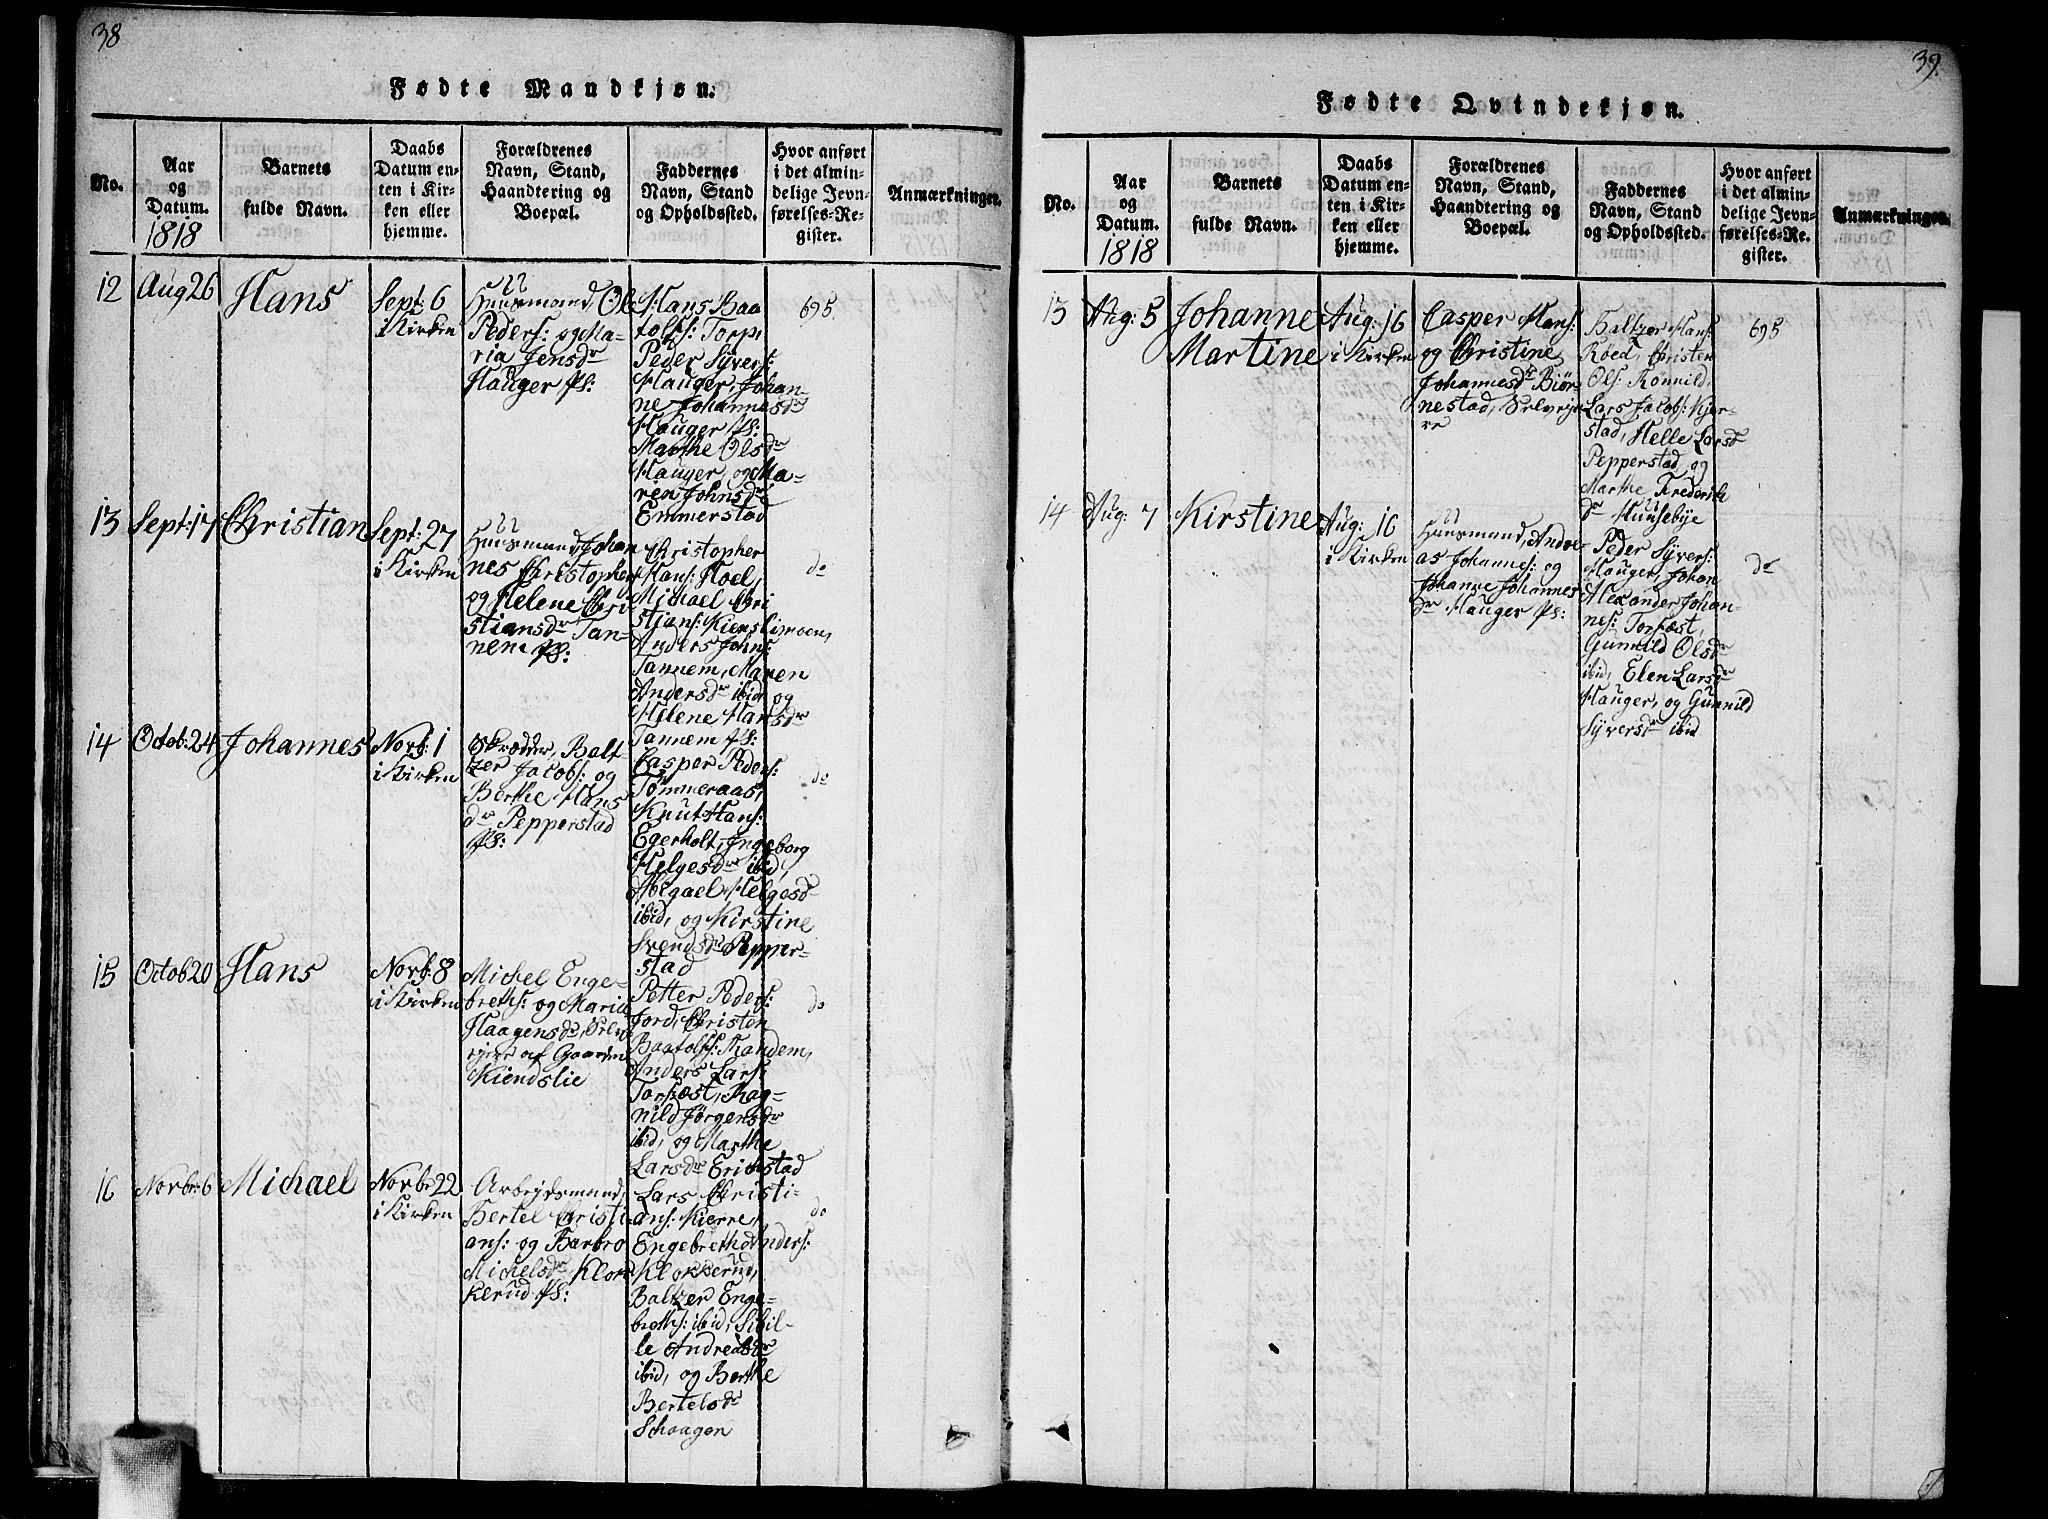 38
Fødte Mandkjøn.
No.
Aar
og
Datum.
1818
Barnets
fulde Navn.
Daabs
Datum en-
ten i Kir-
ken eller
hjemme.
Forældrenes
Navn, Stand,
Haandtering og
Boepæl.
Faddernes
Navn, Stand
og Opholdssted.
Hvor anført
i det almin-
delige Jevn-
førelses-Re-
gister.
Anmærkninger.
12
Aug 26
Hans
Sept: 6
i Kirken
Huusmand Ole
Peders: og Ma-
ria Jensdr
Hauger Ps:
Hans Baa
tolfs: Torp,
Peder Syvers:
Hauger, Johan-
ne Johannesdr
Hauger Ps:
Marthe Olsdr
Hauger, og Ma-
ren Johnsdr
Emmerstad
695
13
Sept: 17
Christian
Sept: 27
i Kirken
Huusmand, Johan
nes Christophers
og Helene Chri
stiansdr Tan-
nem Ps:
Christopher
Hans: Hoel,
Michael Chri
stians: Kienslimoen,
Anders Johns:
Tannem, Maren
Andersdr ibid og
Helene Hansdr
Tannem Ps:
do
14
Octob: 24
Johannes
Novb: 1
i Kirken
Skrædder, Balt
zer Jacobs: og
Berthe Hans
dr Pepperstad
Ps:
Casper Peders:
Tømmeraas,
Knut Hans:
Egerholt, Ingeborg
Helgesdr ibid,
Abegael Helgesd
ibid, og Kirstine
Svendsdr Pepper-
stad
do
15
Octob 20
Hans
Novb: 8
i Kirken
Michel Enge-
breths: og Maria
Haagensdr, Selv
ejere af Gaarden
Kiendslie
Petter Peders:
Jord, Christen
Baatolfs: Thandem,
Anders Lars:
Torfæst, Rag-
nild Jørgensdr
ibid, og Marthe
Larsdr Erichstad
do
16
Novbr: 6
Michael
Novb: 22
i Kirken
Arbejdsmand,
Bertel Christi-
ans: og Barbro
Michelsdr Klok
kerud Ps:
Lars Christi-
ans: Kierre,
Engebreth Anders:
Klokkerud,
Baltzer Enge-
breths: ibid, Sibil-
le Andreasdr
ibid, og Berthe
Bertelsdr
Schaugen
do
39.
Fødte Qvindekjøn.
No.
Aar
og
Datum.
1818
Barnets
fulde Navn.
Daabs
Datum en-
ten i Kir-
ken eller
hjemme.
Forældrenes
Navn, Stand,
Haandtering og
Boepæl.
Faddernes
Navn, Stand
og Opholdssted.
Hvor anført
i det almin-
delige Jevn-
førelses-Re-
gister.
Anmærkninger.
13
Aug: 5
Johanne
Martine
Aug: 16
i Kirken
Casper Hans:
og Christine
Johannesdr Biør-
nestad, Selveje-
re
Baltzer Hans:
Røed, Christen
Ols: Rønnild,
Lars Jacobs: Kjer-
stad, Helle Larsdr
Pepperstad, og
Marthe Frederik
dr Huusebye
695
14
Aug: 7
Kirstine
Aug: 16
i Kirken
Huusmand, Andre-
as Johannes: og
Johanne Johannes
dr Hauger Ps:
Peder Syvers:
Hauger, Johan
Alexander Johan-
nes: Torfæst,
Gunnild Olsdr
ibid, Elen Larsdr
Hauger, og Gunnild
Syversdr ibid
do